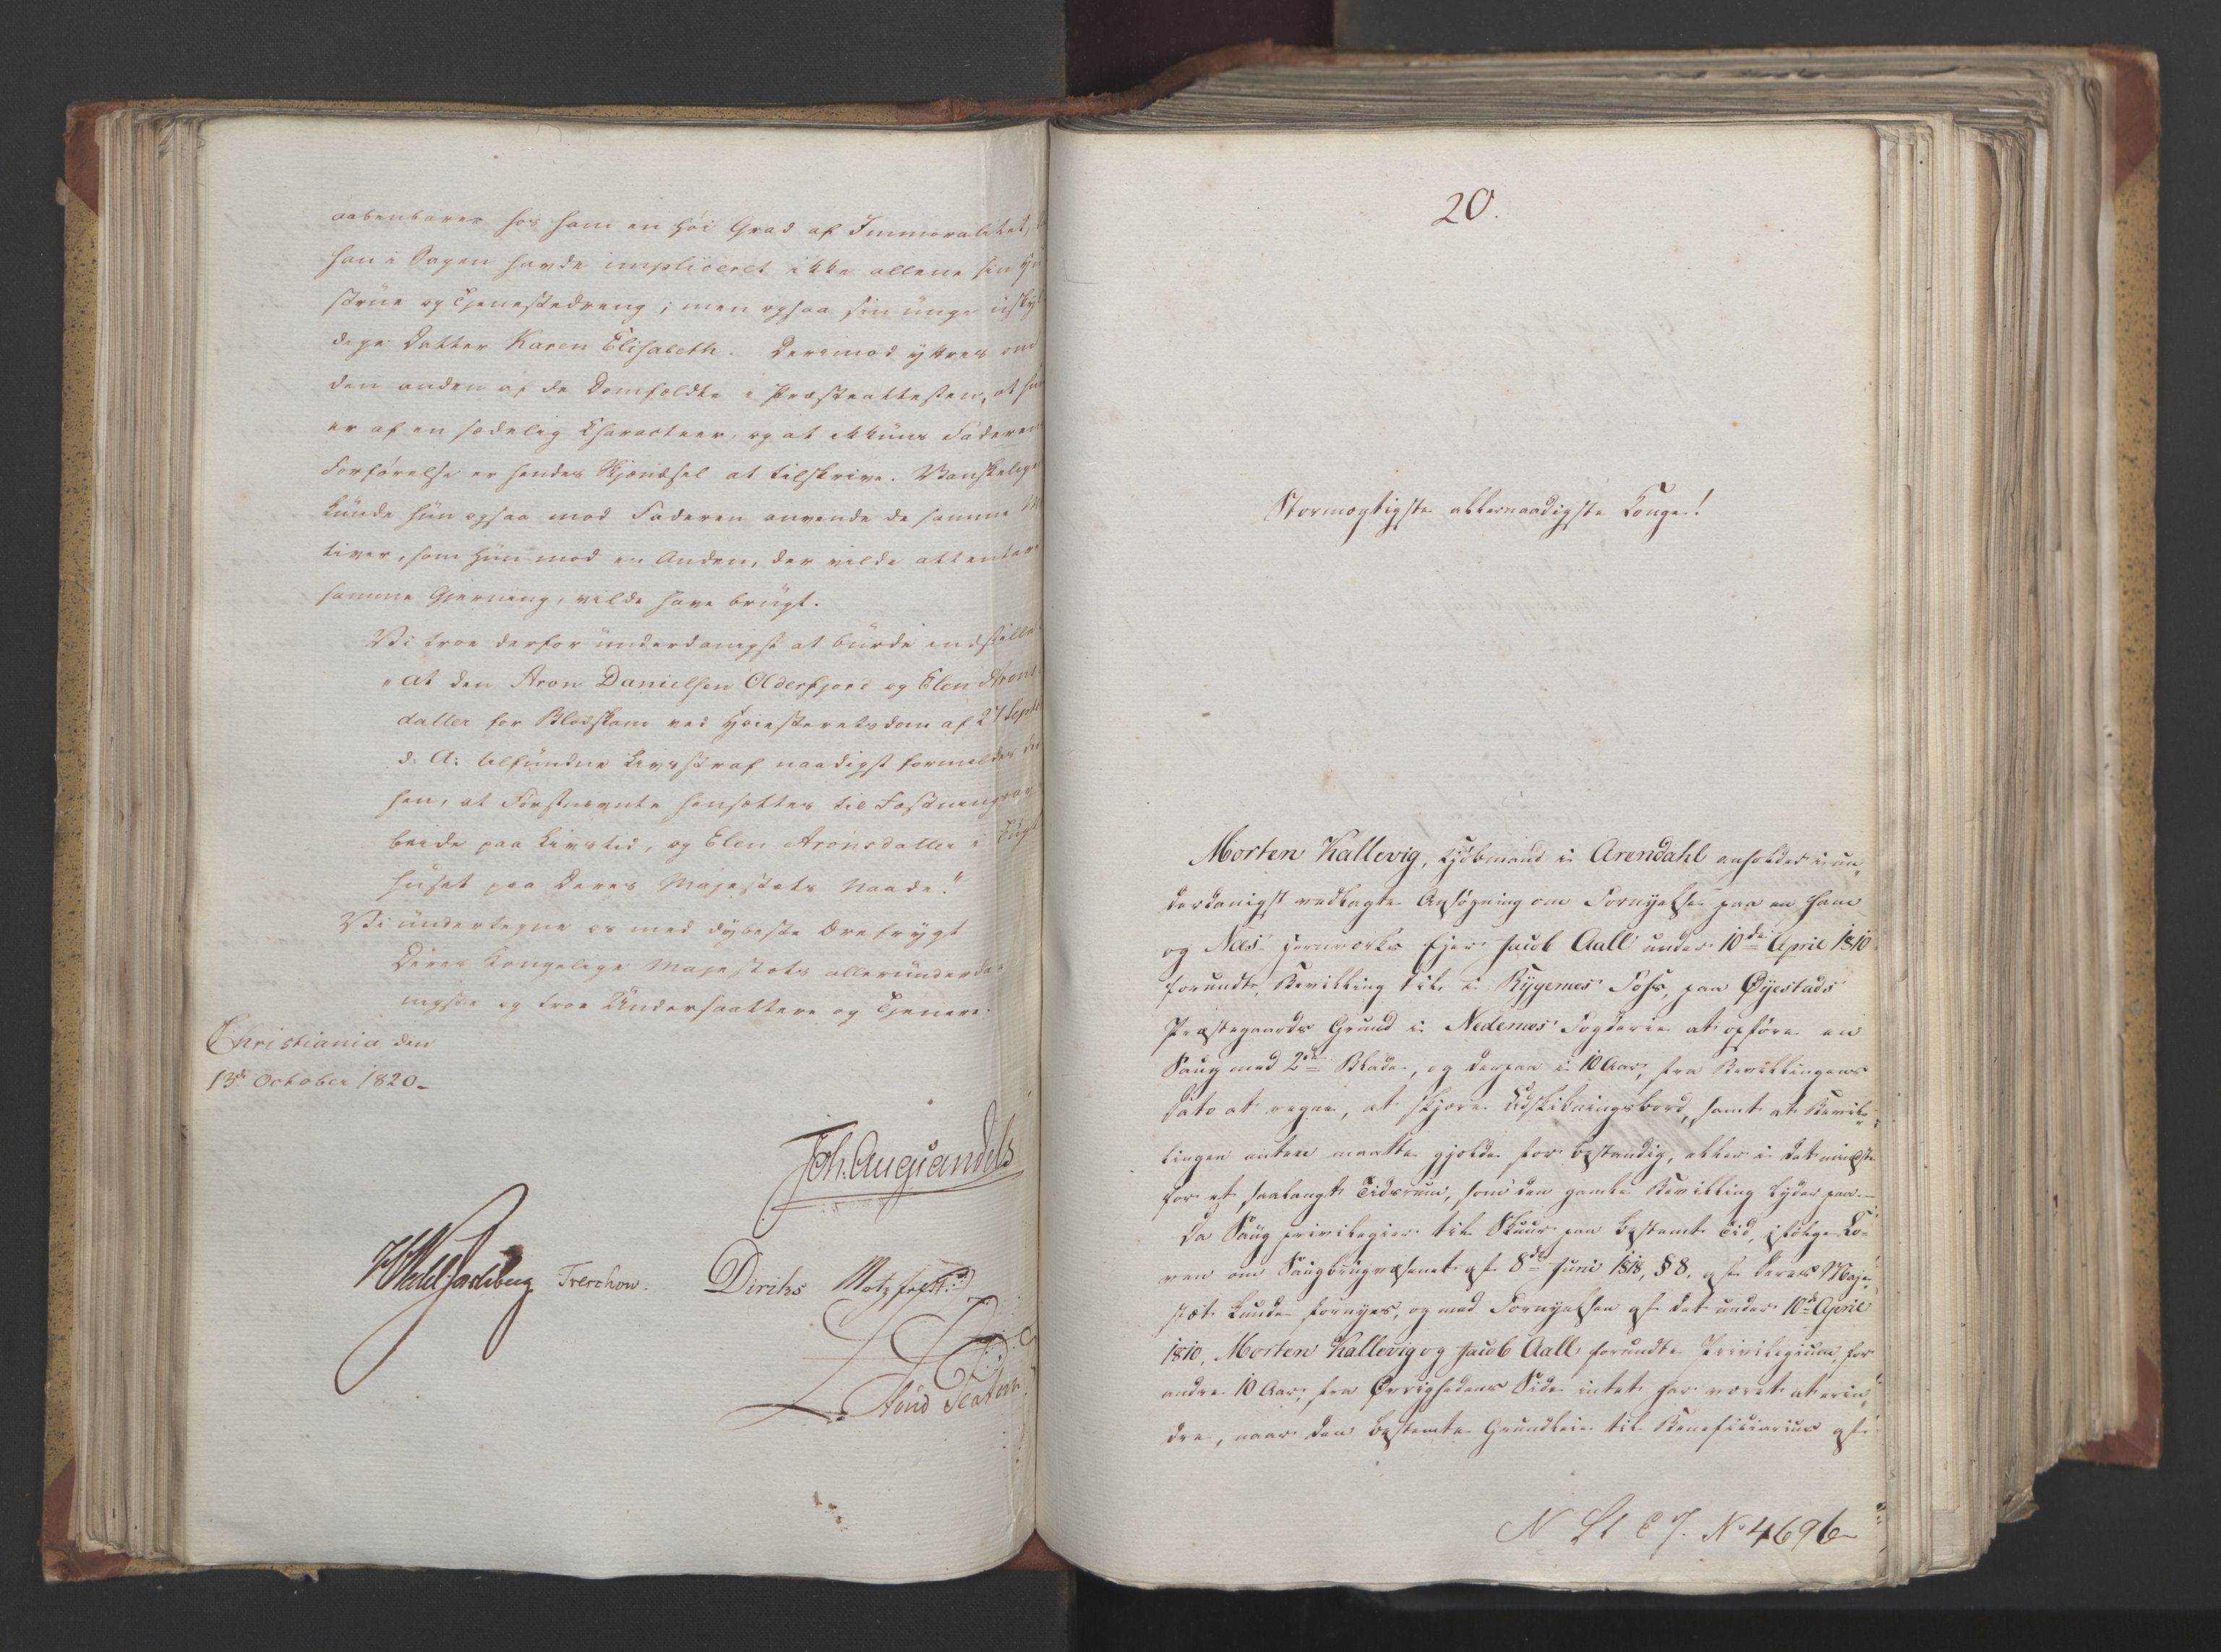 aabenbarer hos ham en høi Grad af Immoralitet,
han i Sagen havde impliceret ikke allene sin
strue og Tjenestedreng; men ogsaa sin unge uskyl
dige Datter Karen Elisabeth. Derimod yttres om
den anden af de Domfældte i Præsteattesten, at hun
er af en sædelig Characteer, og at ikkuns Faderens
Forførelse er hendes Skjændsel at tilskrive. Vanskelige
kunde hun ogsaa mod Faderen anvende de samme
tiver, som hun mod en Anden, der vilde attentere
samme Gjerning, vilde have brugt.
Vi troe derfor underdanigst at burde indstille
"at den Aron Danielsen Olderfjord og Elen Arons
datter for Blodskam ved Høiesteretsdom af 27 Septbr
d. A: tilfundne Livsstraf naadigst formildes der
hen, at Førstnævnte hensættes til Fæstningsar
beide paa Livstid, og Elen Aronsdatter i Tugt
huset paa Deres Majestæts Naade."
Vi undertegne os med dybeste Ærefrygt
Deres Kongelige Majestæts allerunderda
nigste og troe Undersaattere og Tjenere.
Christiania den
13de October 1820.
Joh. Aug. Sandels
Treschow. Diriks Motzfeldt
20.
Stormægtigste allernaadigste Konge!
Morten Kallevig, Kjøbmand i Arendahl anholder i un-
derdanigst vedlagte Ansøgning om Fornyelse paa en ham
og Næs Jernværks Ejer Jacob Aall under 10de April 1810
forundt Bevilling til i Rygenes Fos, paa Øyestads
Præstegaards Grund i Nedenæs Fogderie at opføre en
Saug med 2de Blade, og derpaa i 10 Aar, fra Bevillingens
Dato at regne, at skjære Udskibningsbord, samt at Bevil-
lingen enten maatte gjelde for bestandig, eller i det mindste
for et saalangt Tidsrum, som den gamle Bevilling lyder paa.
Da Saug privilegier til Skuur paa bestemt Tid, ifølge Lo-
ven om Saugbrugvæsenet af 8de Juni 1818, § 8. af Deres Maje-
stæt kunde fornyes, og mod Fornyelsen af det under 10de April
1810, Morten Kallevig og Jacob Aall forundte Privilegium, for
andre 10 Aar, fra Øvrighedens Side intet har været at erin-
dre, naar den bestemte Grundleie til Beneficiarius af
No 4696